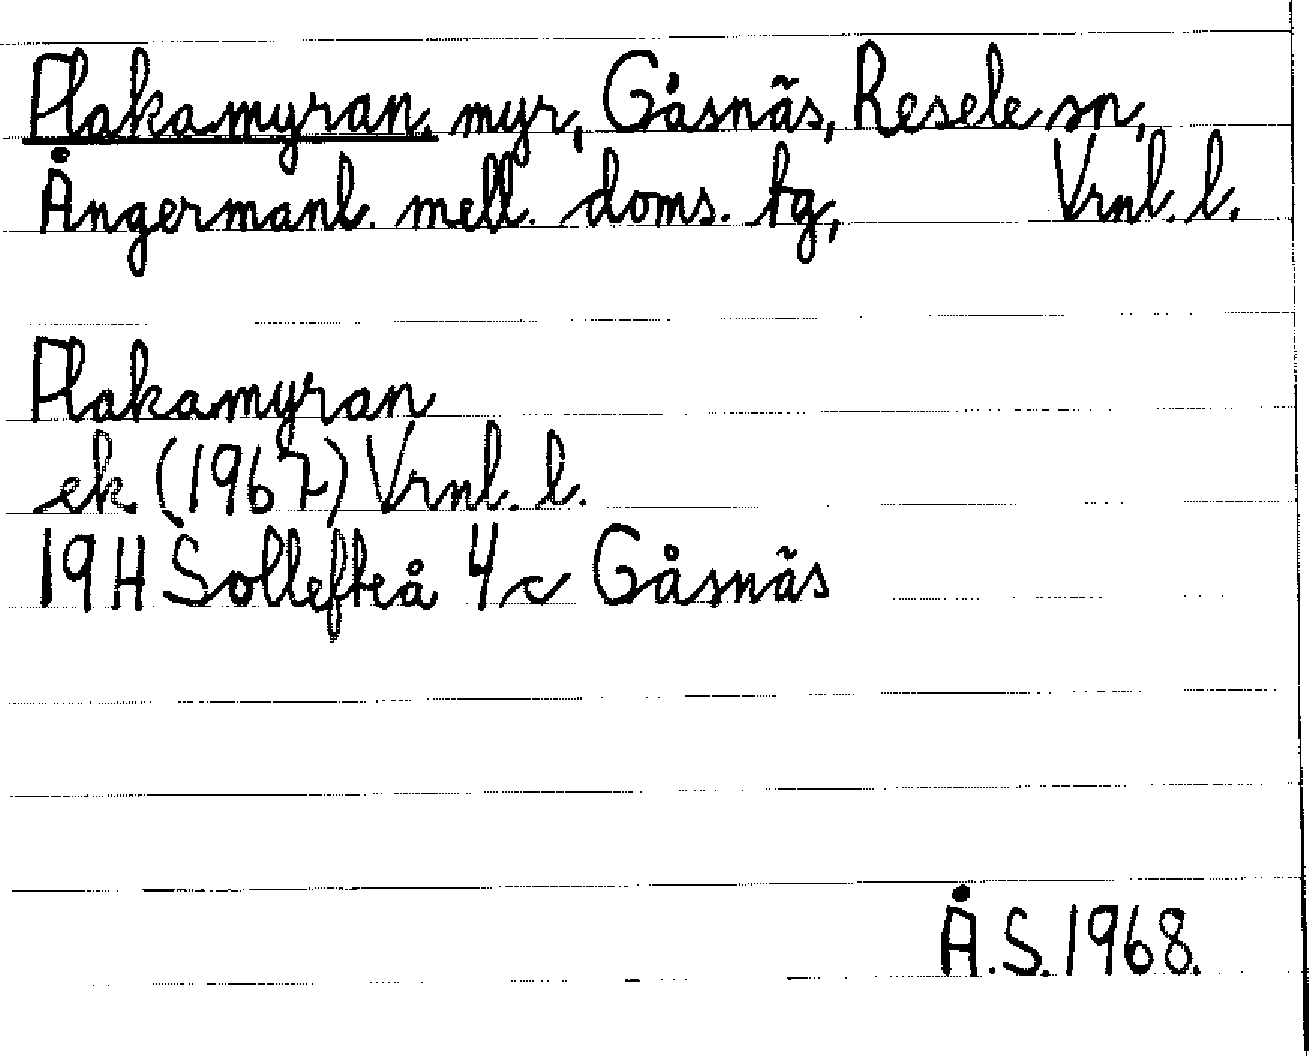 Plakamyran. myr, Gåsnäs, Resele sn,
Ångermanl. mell. doms. tg, Vrnl. l.
Plakamyran
ek. (1967) Vrnl. l.
19H Sollefteå 4c Gåsnäs
Å.S. 1968.